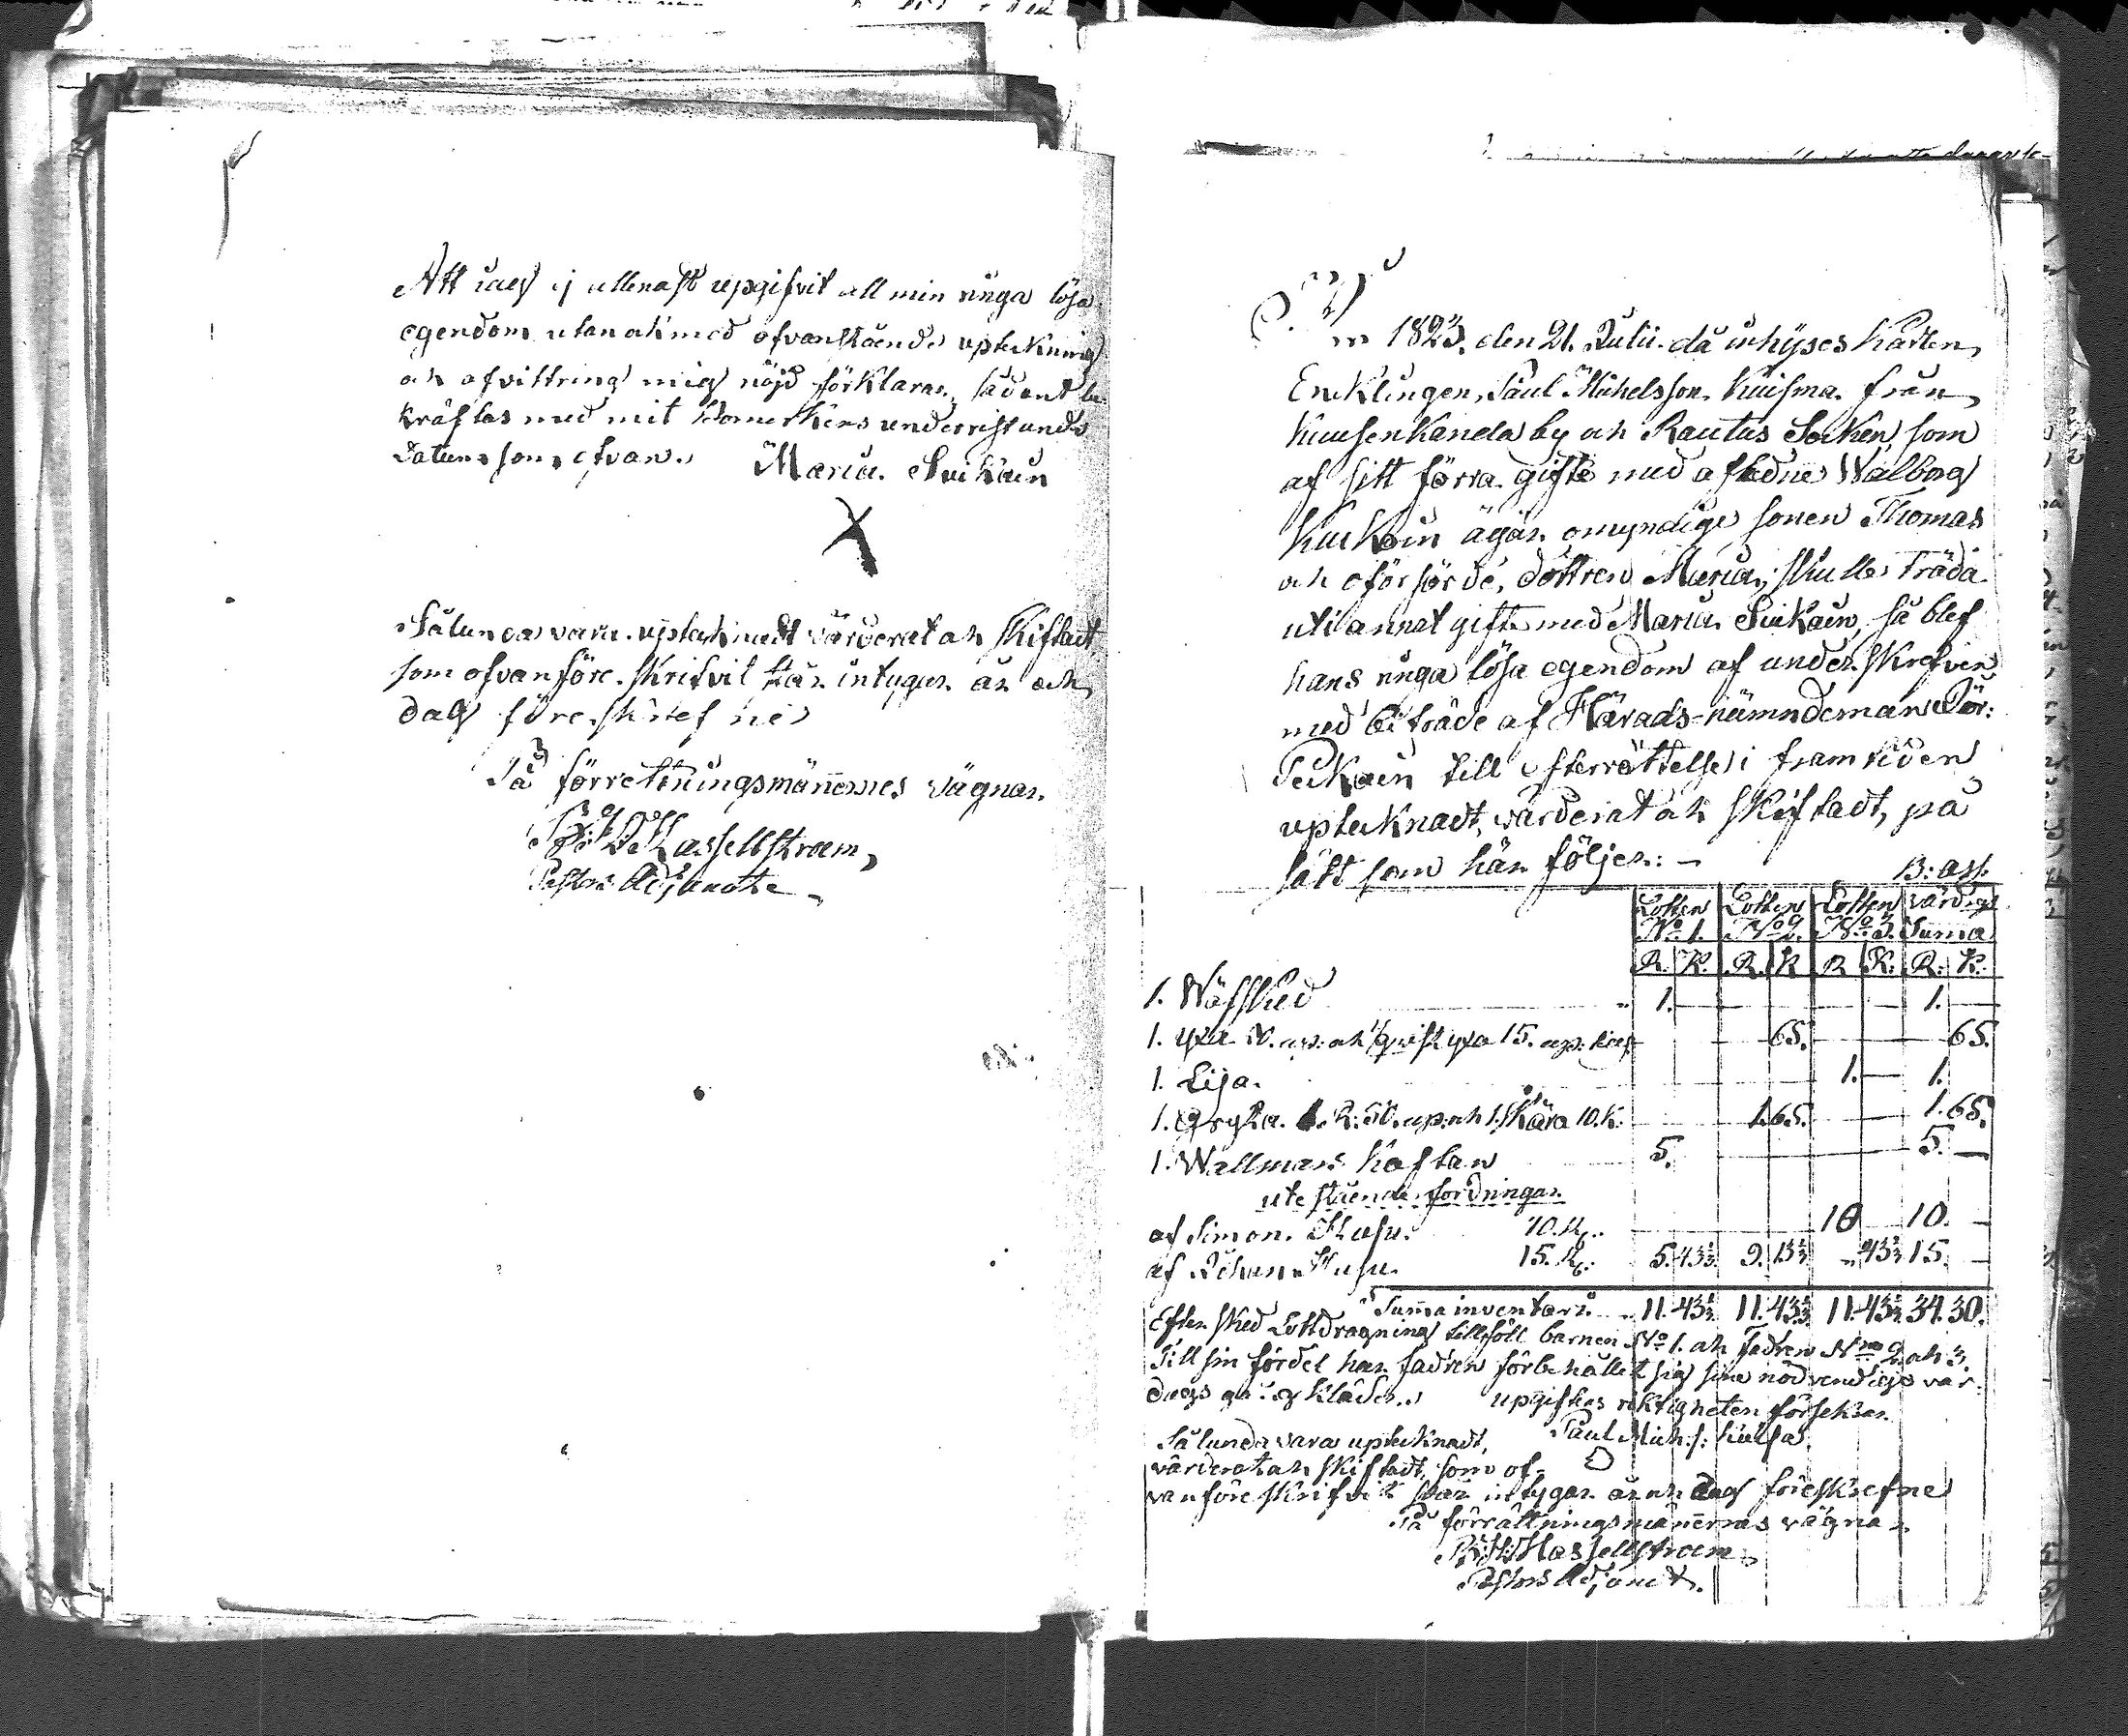 Att iag ej allenast upgifvit all min ringa lösa
egendom utan ock med ofvanstående uptekning
och afvittring mig nöjd förklarar, sådant be-
kräftas med mit bomerkens underristande
Datum som ofvan. Maria Siikain
X
Sålunda vara uptecknadt värderat och skiftadt
som ofvanföre skrifvit står intygar år och
dag föreskrefne
På förretningsmännernes vägnar
Hassellstroem,
Pastors Adjuncte
1823. den 21. Julii då inhyses karlen
Encklingen Paul Michelsson Kuisma från
Kuusenkanda by och Rautus Socken, som
af sitt förra gifte med afledne Walborg
Kuckoin äger omyndige sonen Thomas
och oförsörgde dottren Maria, skulle träda
uti annat gifte med Maria Siikain, så blef
hans ringa lösa egendom af underskrefven
med biträde af Härads-nämndeman Pär:
Peckain till efterrättelse i framtiden
upteknadt, värderat och skiftadt, på
sätt som här följer: —
B: ass.
Lotten Lotten Lotten värdigs
No 1. No 2. No 3. Summa
R. K. R. K R K: R: K.
1. Wäfsked 1. 1.
1. yxa 50. cop: och 1 qvist yxa 15. cop: kop 65. 65.
1. Lija. 1. 1.
1. Gryta 1. R: 50. cop: och 1. skära 10. K: 1.65. 1.65.
1. Wallmars kaftan 5. 5.
utestående fordringar
af Simon 10. R. 10 10.
af Johan 15. R. 5.43⅓. 9.13⅓ " 43⅓ 15.
Summa inventarii 11.43⅓ 11.43⅓ 11.43⅓ 34.30.
Efter sked Lottdragning tillföll barnen No 1. och Fadren No 2 och 3.
Till sin fördel har fadren förbehållet sig sine nödvendige var-
dags gångkläder. upgiftens riktigheten försekrar
Sålunda vara upteknadt, Paul Mich:s: Kuisa
värderat och skiftadt, som of-
vanföreskrifvit står intygar år och dag föreskrefne
På förrättningsmännernas vägnar
Hassellstroem
Pastors Adjunct.